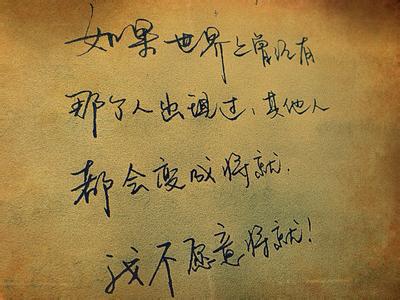 如果世界上曾经有
那个人出现过,其他人
都会变成将就.
我不愿意将就!